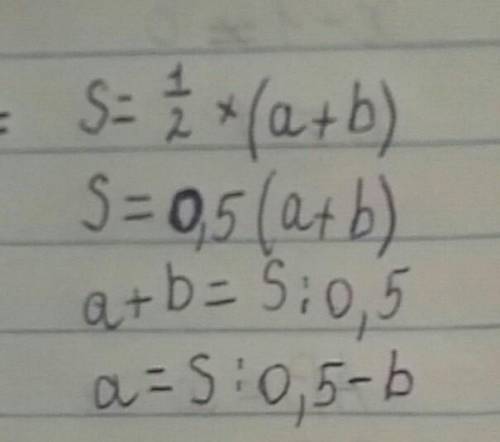 = S = 1/2 × (a+b)
S = 0,5 (a+b)
a+b = S : 0,5
a = S : 0,5 - b